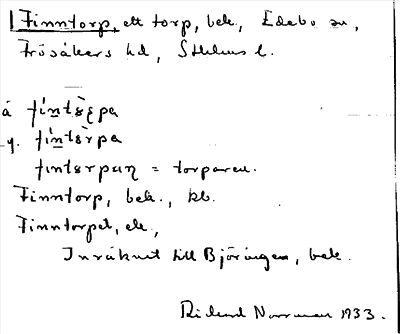 Finntorp, ett torp, bek., Edebo sn,
Frösåkers hd, Sthlms l.
å fíntὲrpa
y. fíntὲrpa
fintɛrpɛŋ = torparen.
Finntorp, bek., kb.
Finntorpet, ek.,
Inräknat till Björingen, bek.
Rickard Norrman 1933.